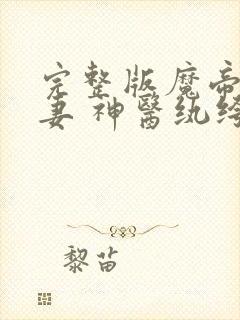 完整版魔帝
妻 神醫紈绔
黎苗